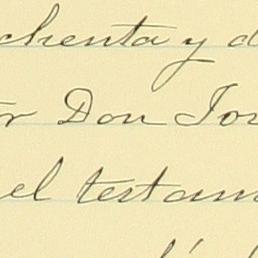 chenta y d
r Don Jos
el testam